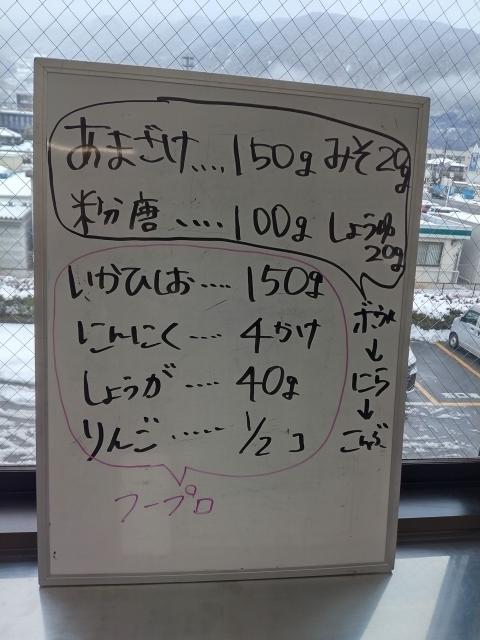 あまざけ....150g みそ20g
粉唐....100g しょうゆ20g
いかひしお....150g
にんにく....4かけ
しょうが....40g
りんご.....1/2コ
フープロ
ボウル
↓
にら
↓
こんぶ